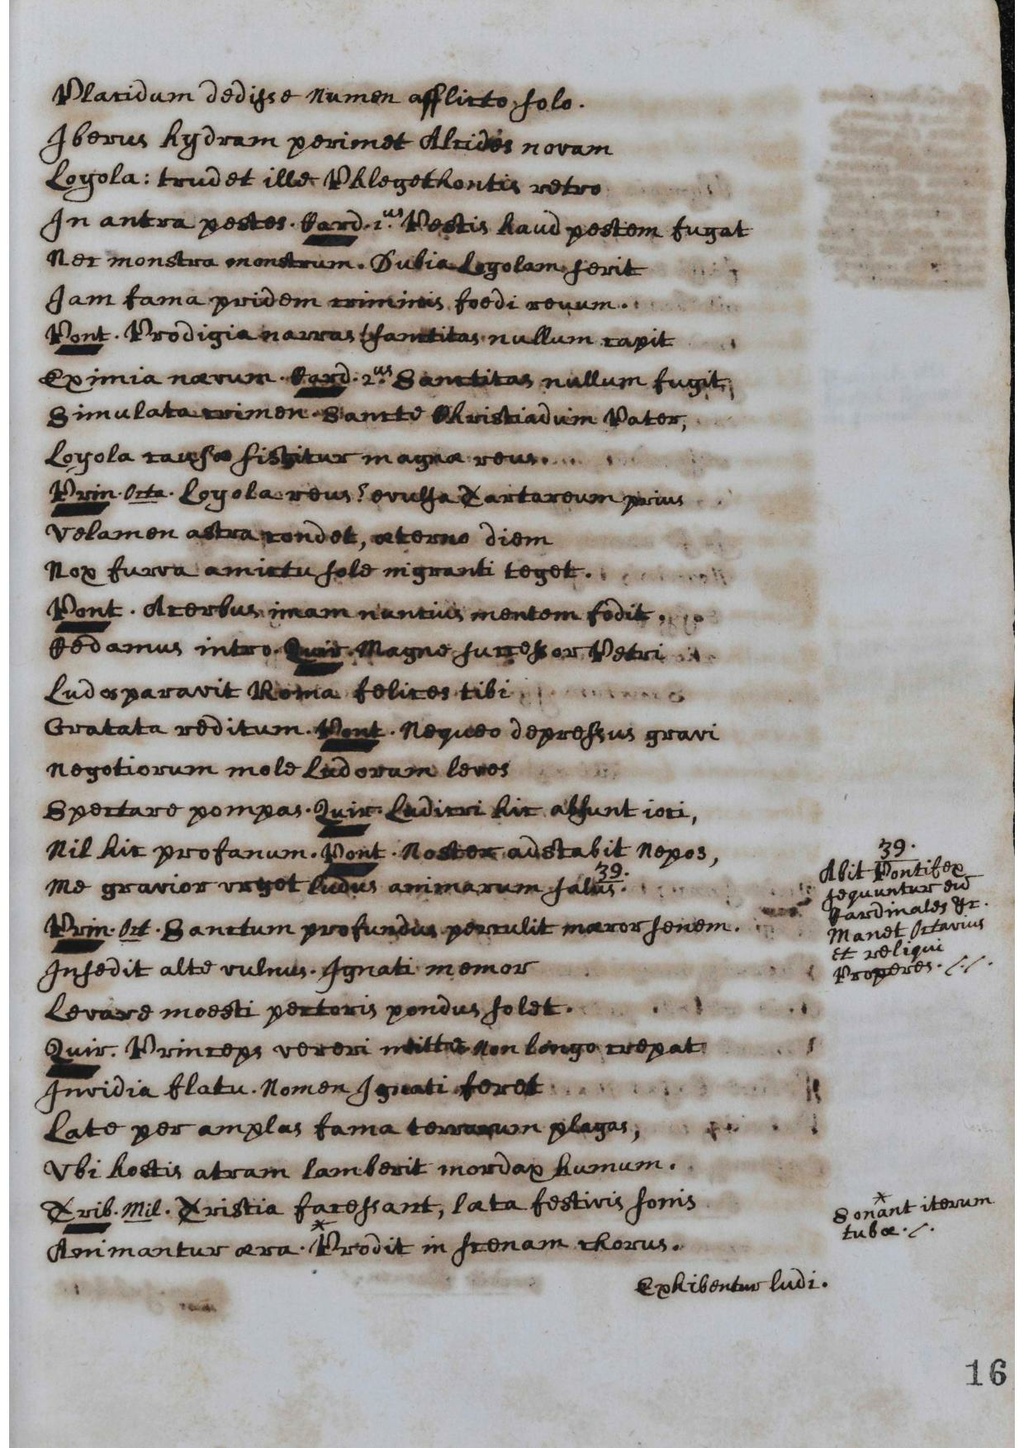 Placidum dedisse numen afflicto solo.
Iberus hydram perimet Alcides novam
Loyola: trudet ille Phlegethontis retro
In antra pestes. Card. 1.us Pestis haud pestem fugat
Nec monstra monstrum. Dubia Loyolam ferit
Jam fama pridem criminis foedi reuum.
Pont. Prodigia narras! sanctitas nullum capit
Eximia nævum. Card. 2.us Sanctitas nullum fugit,
Simulata crimen. Sancte Christiadum Pater,
Loyola causæ sistitur magnæ reus.
Prin. Octa. Loyola reus? evulsa Tartareum prius
Velamen astra condet, æterno diem
Nox furva amictu sole nigranti teget.
Pont. Acerbus imam nuntius mentem fodit.
Cedamus intro. Quir. Magne successor Petri
Ludos paravit Roma felices tibi
Gratata reditum. Pont. Nequeo depressus gravi
Negotiorum mole Ludorum leves
Spectare pompas. Quir. Ludicri hic absunt ioci,
Nil hic profanum. Pont. Noster adstabit Nepos,
Me gravior urget ludus animarum salus. 39.
Prin. Oct. Sanctum profundus perculit mæror senem.
Insedit alte vulnus. Ignati memor
Levare moesti pectoris pondus solet.
Quir. Princeps vereri mitte non longo crepat
Invidia flatu. Nomen Ignati feret
Late per amplas fama terrarum plagas,
Vbi hostis atram lamberit mordax humum.
Trib. Mil. Tristia facessant, læta festivis sonis
Animantur æra. * Prodit in scenam chorus.
Exhibentur ludi.
39.
Abit Pontifex
sequuntur eū
Cardinales &c.
Manet Octavius
et reliqui
Proceres.
*
Sonant iterum
tubæ.
16